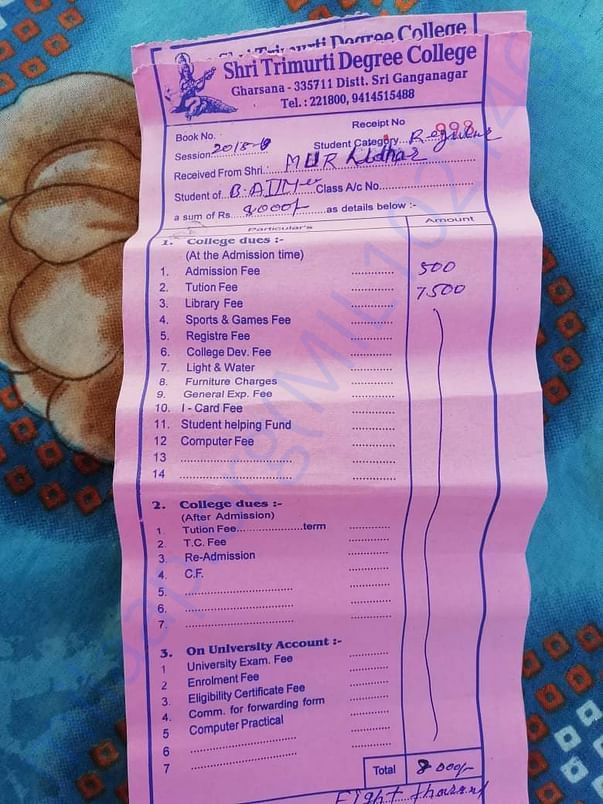 Shri Trimurti Degree College
Shri Trimurti Degree College
Gharsana - 335711 Distt. Sri Ganganagar
Tel. : 221800, 9414515488
Receipt No 998
Book No.
Session 2018-19 Student Category Regular
Received From Shri. MURLidhar
Student of B.A II Class A/c No.
a sum of Rs 8000/- as details below :-
Particular's Amount
1. College dues :-
(At the Admission time)
1. Admission Fee 500
2. Tution Fee 7500
3. Library Fee
4. Sports & Games Fee
5. Registre Fee
6. College Dev. Fee
7. Light & Water
8. Furniture Charges
9. General Exp. Fee
10. I - Card Fee
11. Student helping Fund
12 Computer Fee
13
14
2. College dues :-
(After Admission)
1. Tution Fee term
2. T.C. Fee
3. Re-Admission
4. C.F.
5.
6.
7.
3. On University Account :-
1 University Exam. Fee
2 Enrolment Fee
3. Eligibility Certificate Fee
4. Comm. for forwarding form
5 Computer Practical
6
7
Total 8000/-
Eight